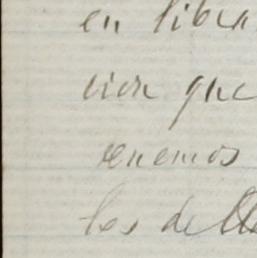 en libra
cion que
enemos
los de